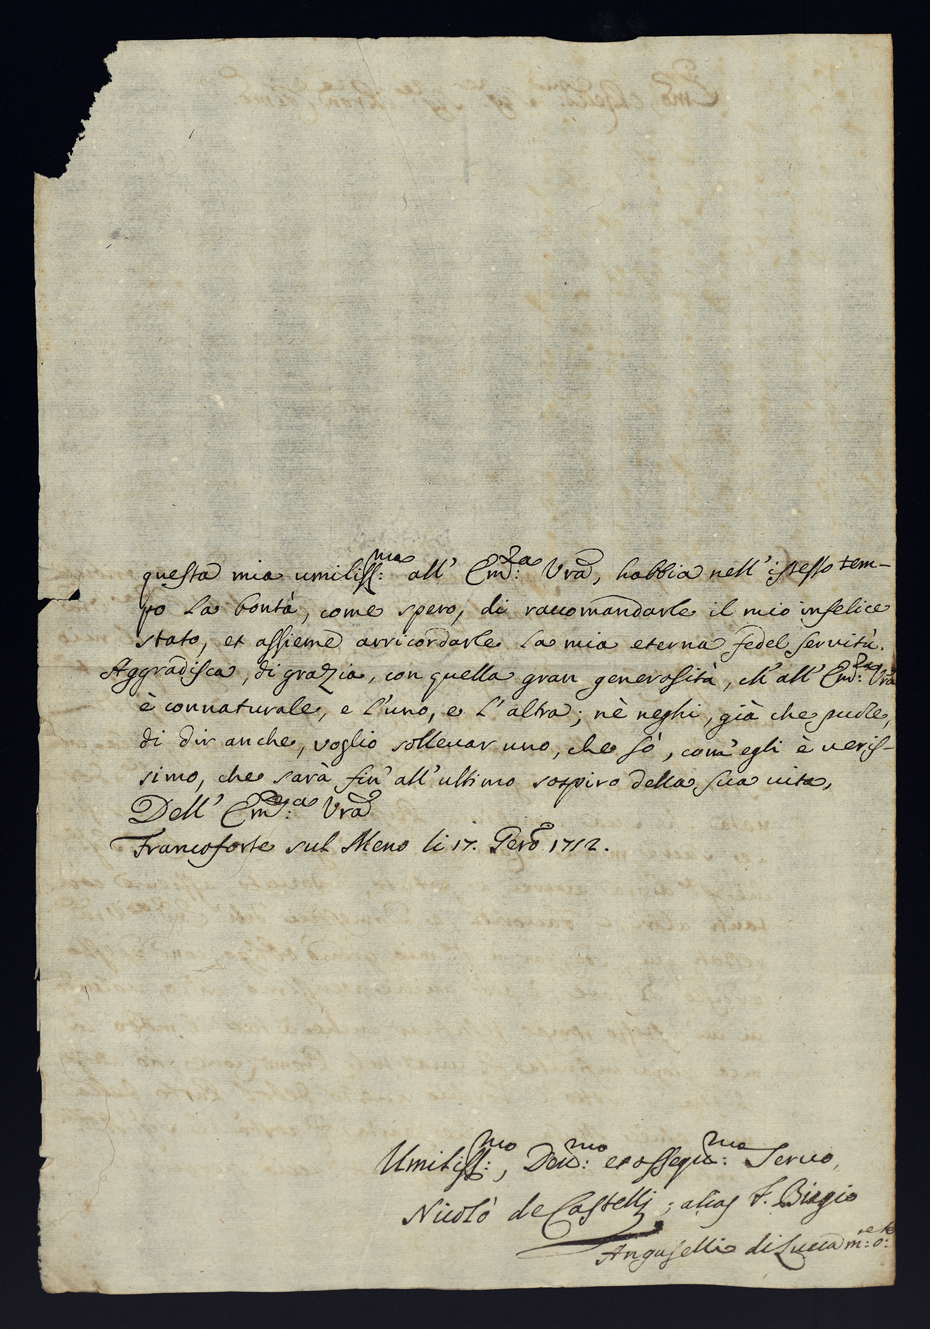 questa mia umiliss:ma all' Em:za Vra, habbia nell' istesso tem-
po la bontà, come spero, di raccomandarle il mio infelice
stato, et assieme arricordarle la mia eterna fedel servitù.
Aggradisca, di grazia, con quella gran generosità, ch' all' Em:za Vra
è connaturale, e l'uno, e l'altra; nè neghi, già che puole,
di dir anche, voglio sollevar uno, che sò, com' egli è veris-
simo, che sarà fin' all' ultimo sospiro della sua vita,
Dell' Em:za Vra
Francoforte sul Meno li 17. Genro 1712.
Umiliss:mo, Deu:mo et ossequ:mo Servo,
Nicolò de Castelli; alias F. Biagio
Anguselli di Lucca m:e o: